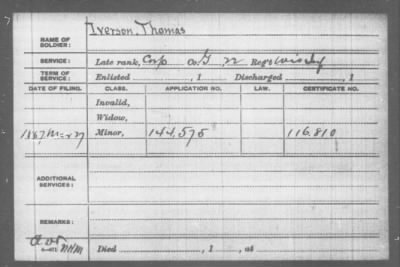 Iverson, Thomas
NAME OF SOLDIER:
SERVICE: Late rank, Corp Co. G 22 Reg't Wis Inf
TERM OF SERVICE: Enlisted , 1 Discharged , 1
DATE OF FILING. CLASS. APPLICATION NO. LAW. CERTIFICATE NO.
Invalid,
Widow,
1867, Mar 27 Minor, 144,575 116,810
ADDITIONAL SERVICES:
REMARKS:
Died , 1 , at